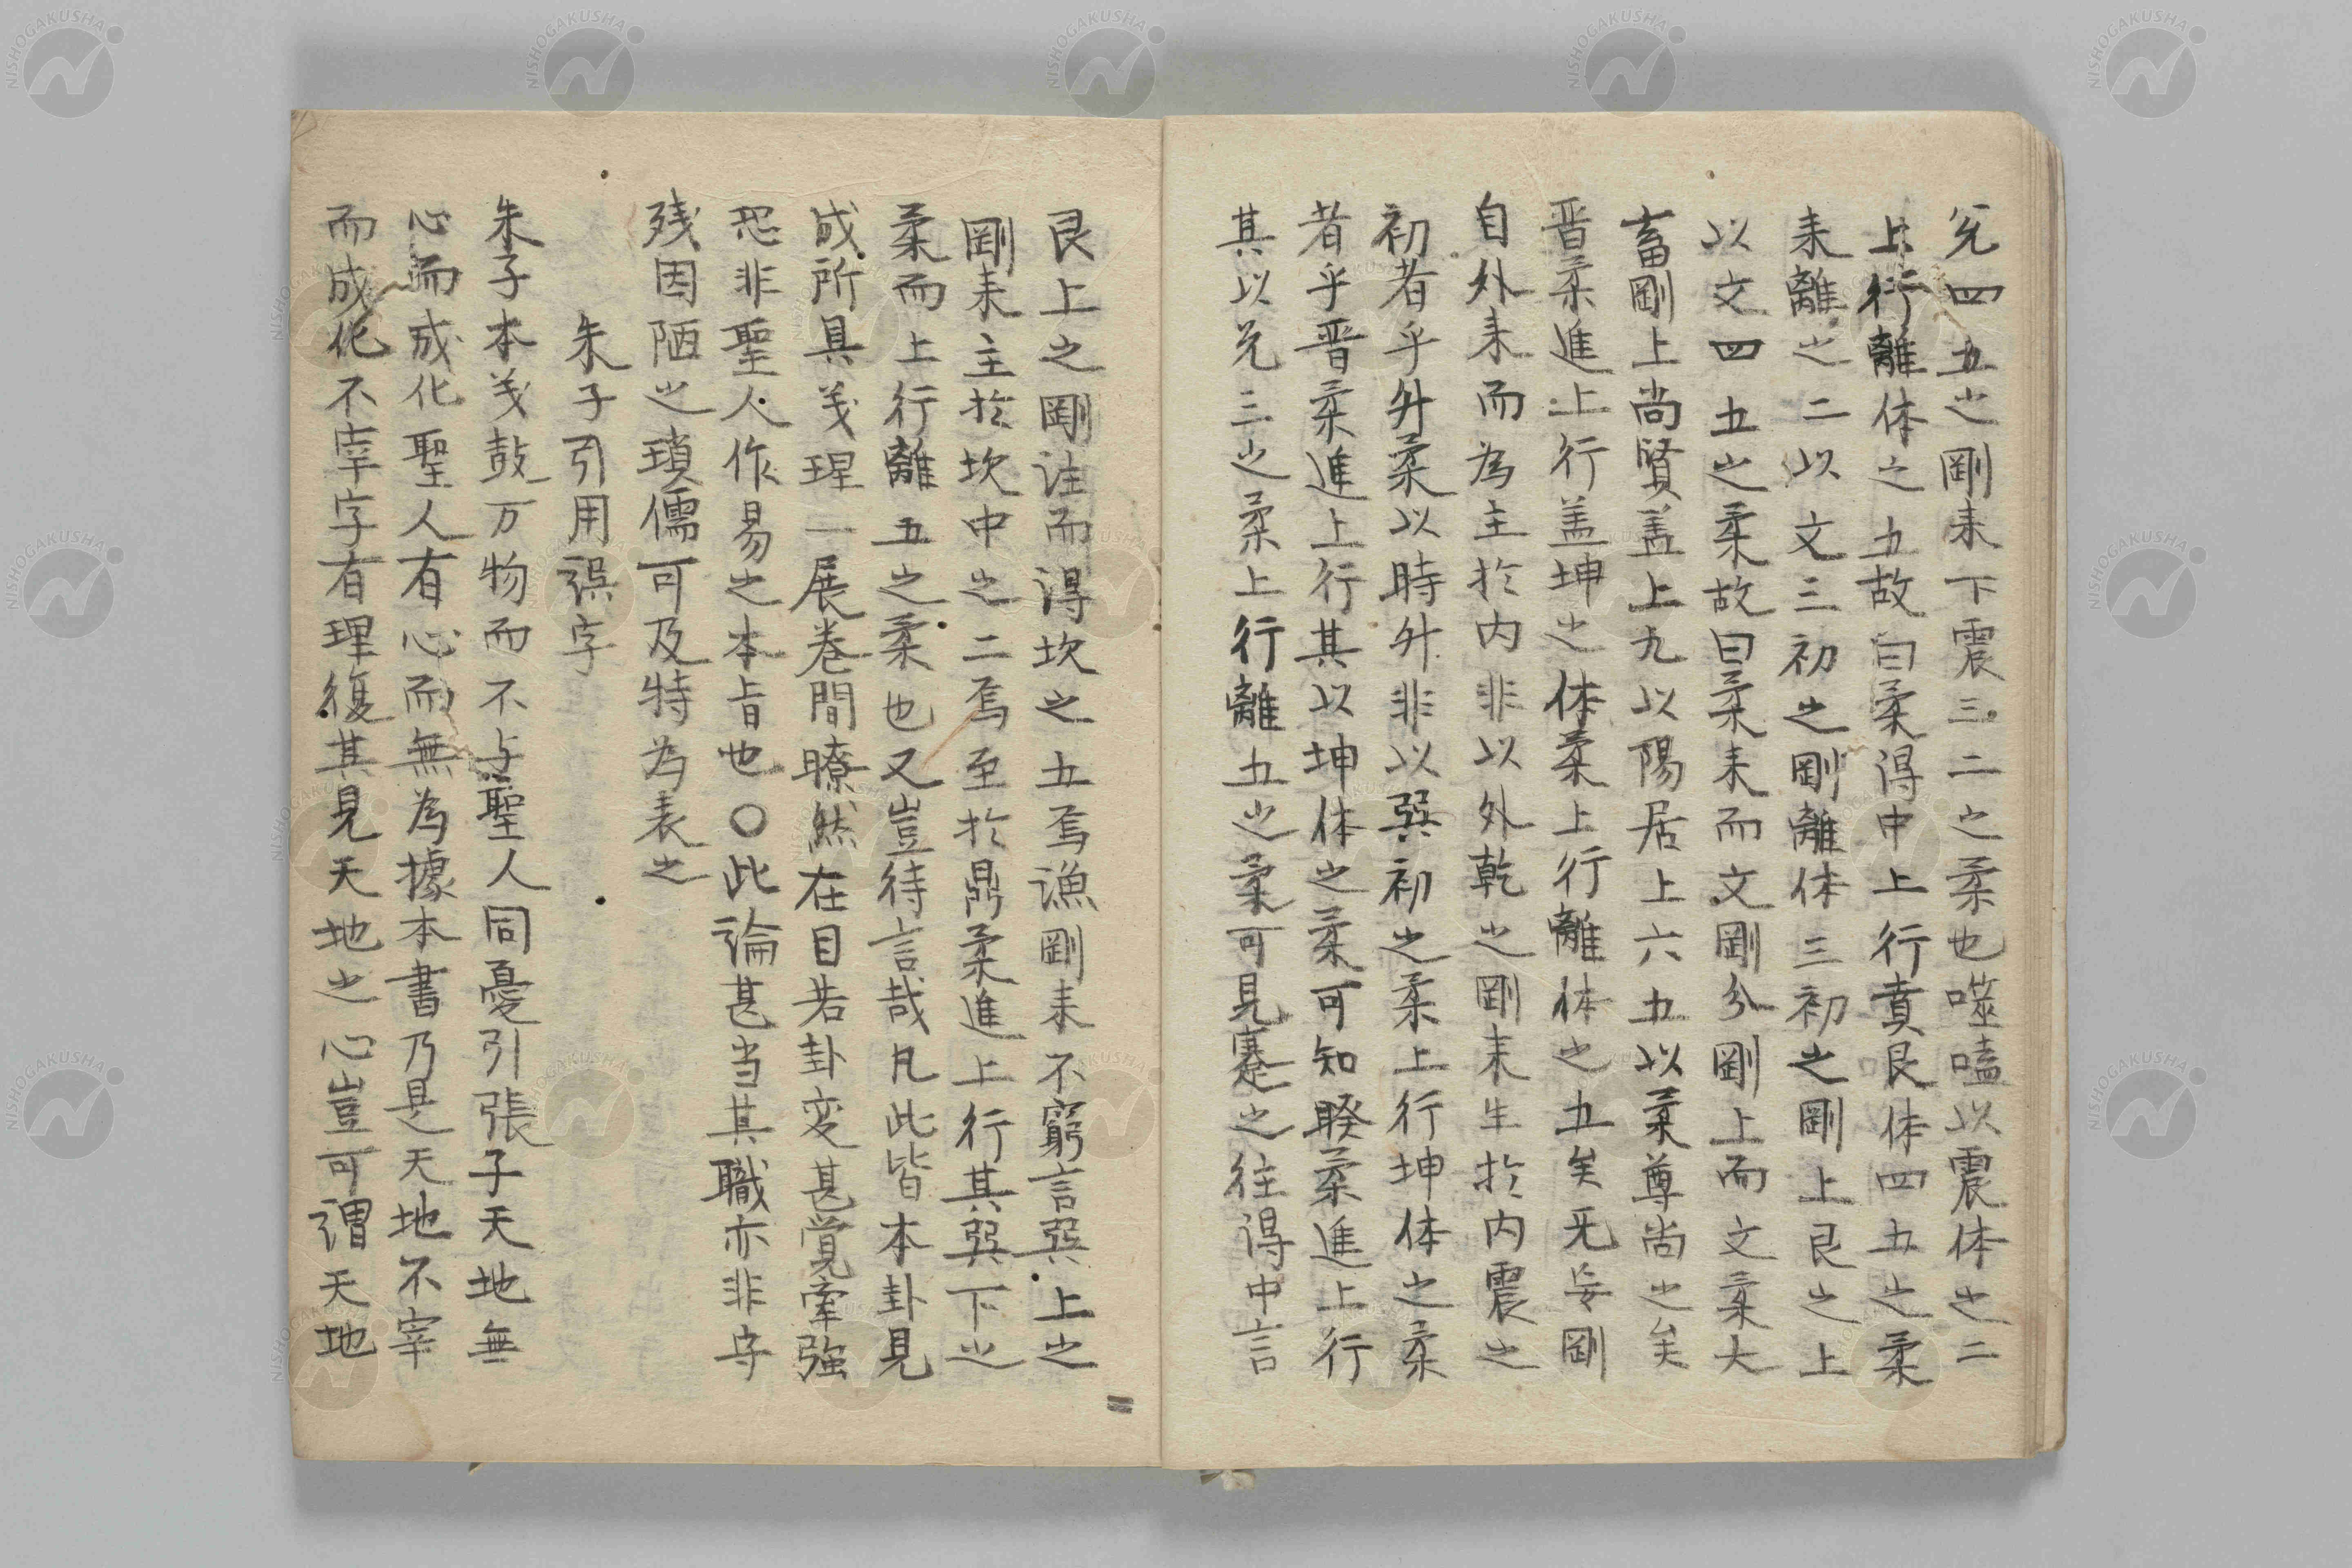 兌四五之剛耒下震三二之柔也噬嗑以震体之二
上行離体之五故曰柔得中上行賁艮体四五之柔
耒離之二以文三初之剛離体三初之剛上艮之上
以文四五之柔故曰柔耒而文剛分剛上而文柔大
畜剛上尚賢盖上九以陽居上六五以柔尊尚之矣
晋柔進上行盖坤之体柔上行離体之五矣无妄剛
自外耒而為主於内非以外乾之剛耒生於内震之
初者乎升柔以時升非以巽初之柔上行坤体之柔
者乎晋柔進上行其以坤体之柔可知睽柔進上行
其以兌三之柔上行離五之柔可見蹇之往得中言
艮上之剛注而得坎之五焉漁剛耒不窮言巽上之
剛耒主於坎中之二焉至於鼎柔進上行其巽下之
柔而上行離五之柔也又豈待言哉凡此皆本卦見
成所具義理一展卷間瞭然在目若卦変甚覚牽強
恐非聖人作易之本旨也〇此論甚当其職亦非守
残因陋之瑣儒可及特為表之
朱子引用誤字
朱子本義鼓万物而不与聖人同憂引張子天地無
心而成化聖人有心而無為據本書乃是天地不宰
而成化不宰字有理復其見天地之心豈可謂天地
NISHOGAKUSHA